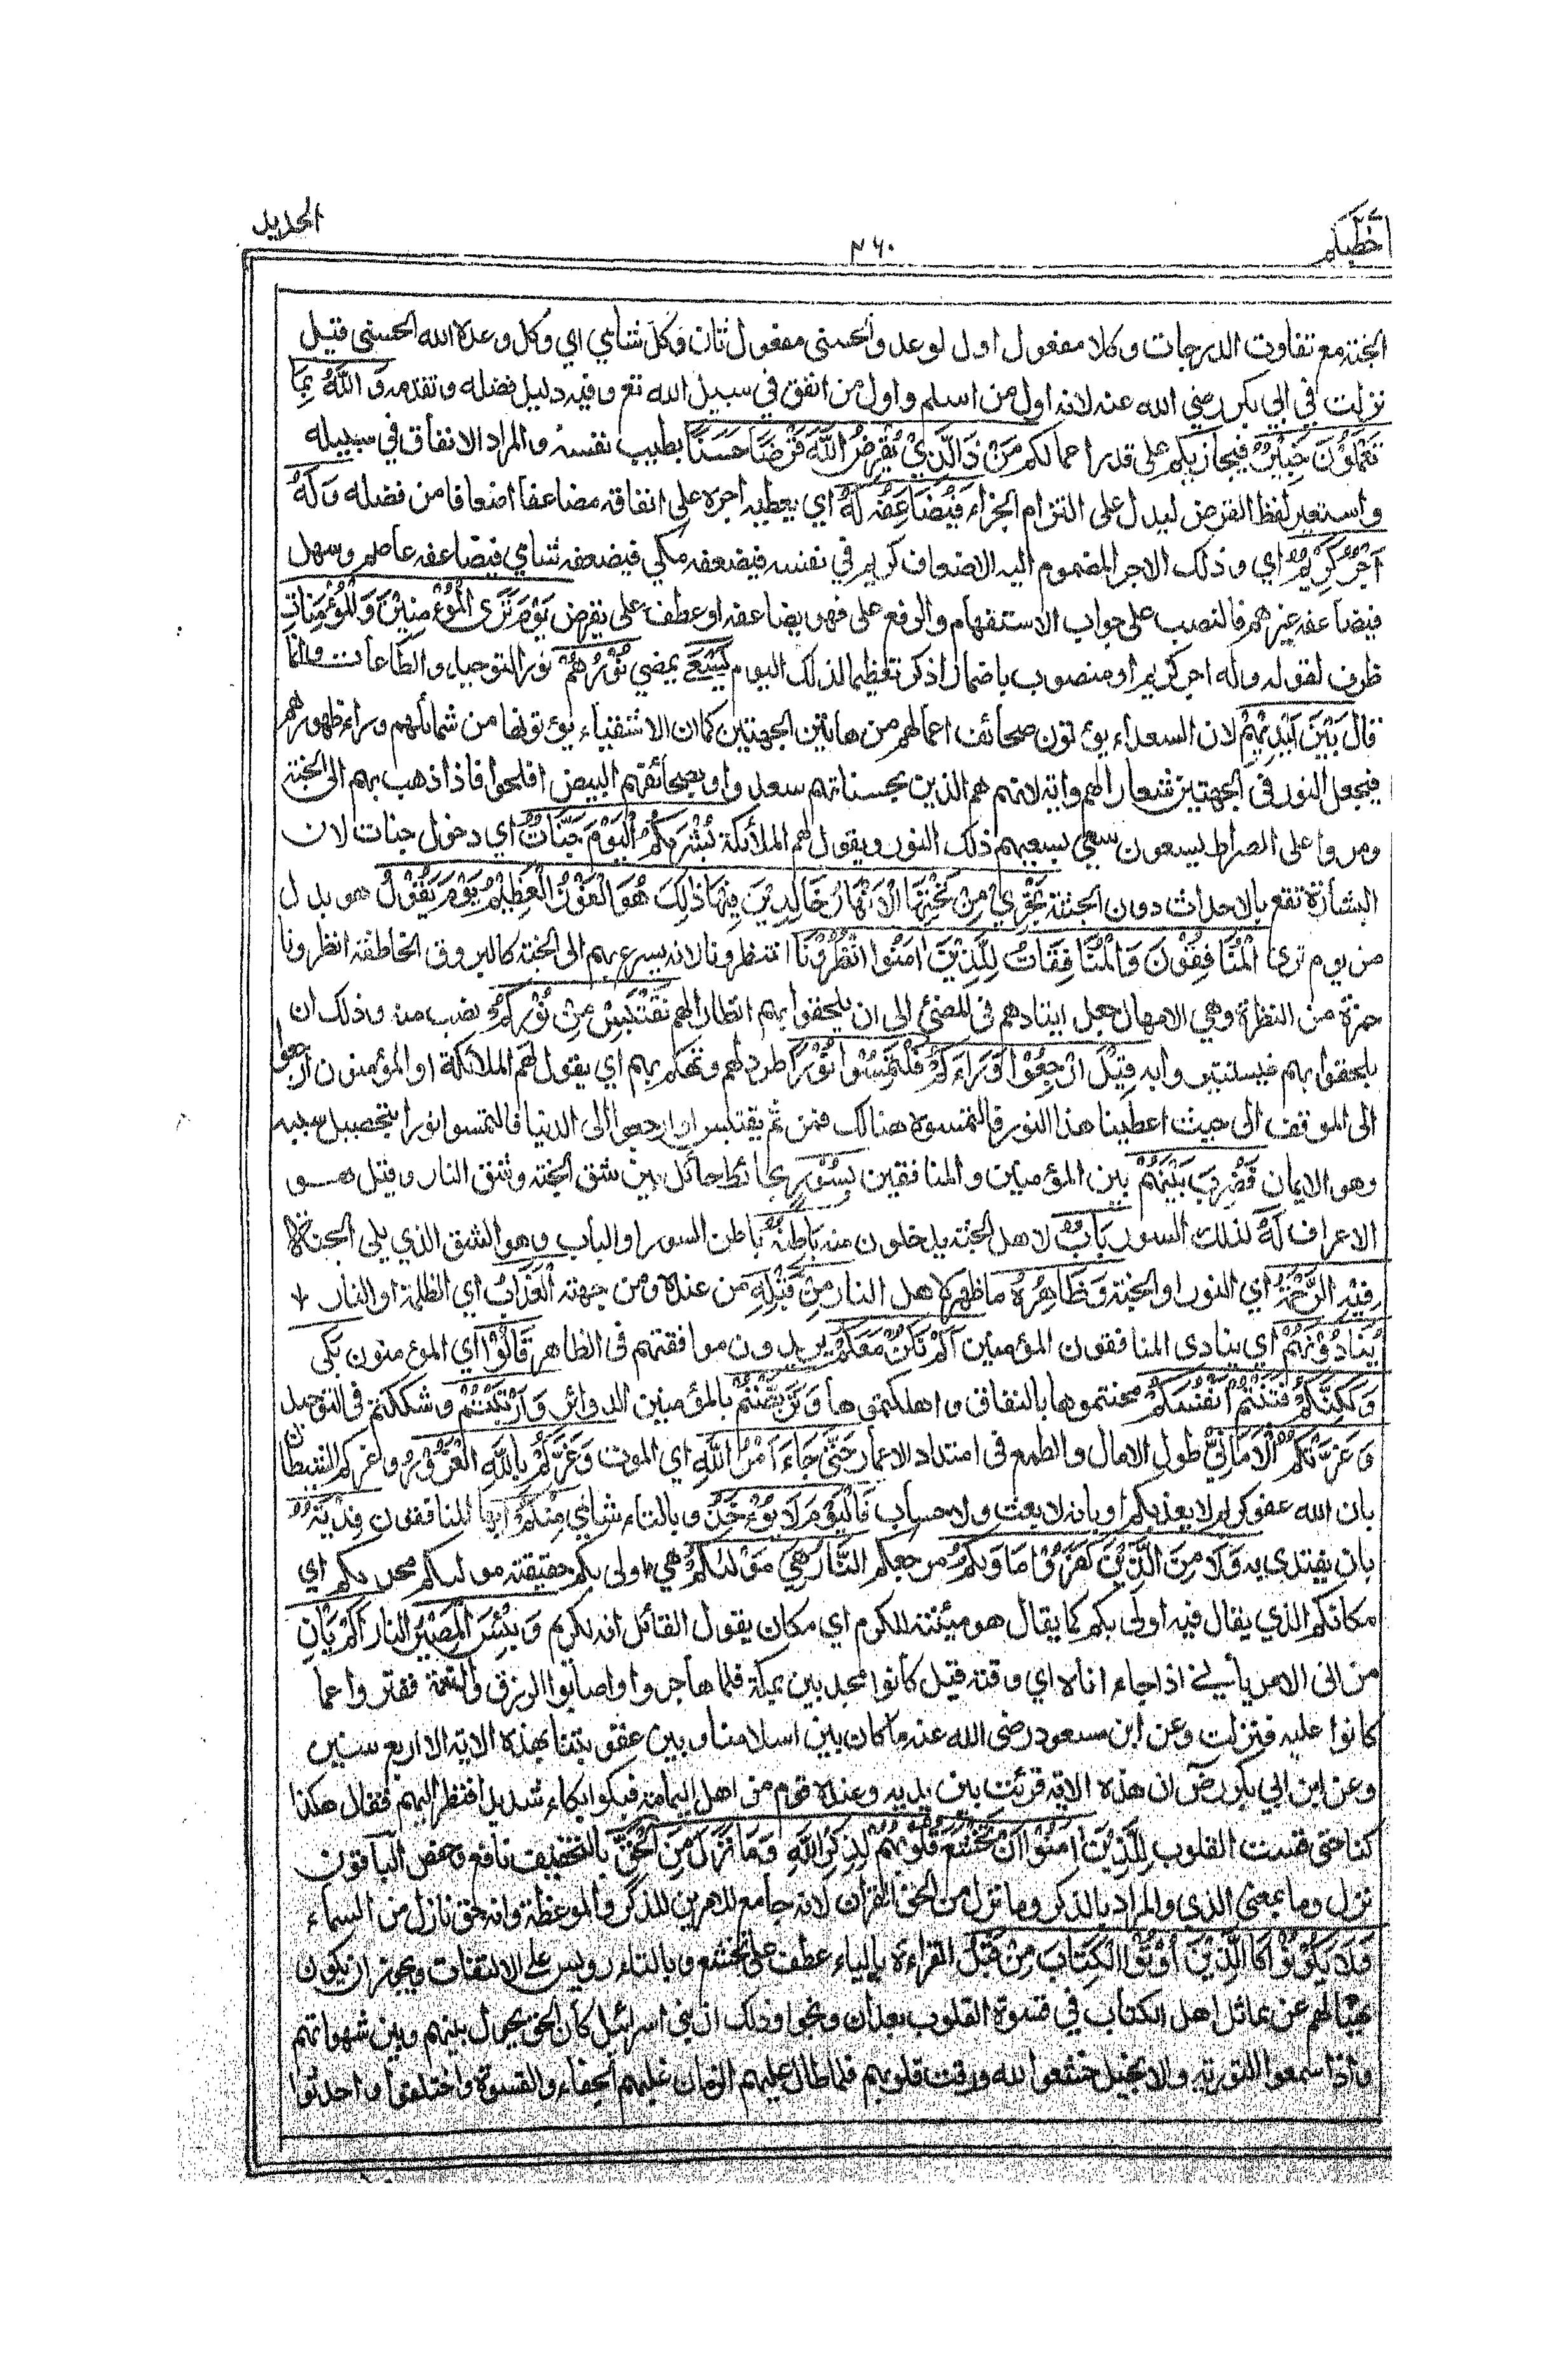 الحديد
٢٦٠
خطبكم
الجنة مع تفاوت الدرجات وكلا مفعول اول لوعد والحسنى مفعول ثان وَكُلٌّ شامي اي وكل وعده الله الحسنى قيل
نزلت في ابي بكر رضي الله عنه لانه اول من اسلم واول من انفق في سبيل الله تع وفيه دليل فضله وتقدمه وَاللَّهُ بِمَا
تَعْمَلُوْنَ خَبِيْرٌ فيجازيكم على قدر اعمالكم مَنْ ذَا الَّذِيْ يُقْرِضُ اللَّهَ قَرْضًا حَسَنًا بطيب نفسه والمراد الانفاق في سبيله
واستعير لفظ القرض ليدل على التزام الجزاء فَيُضَاعِفَهُ لَهُ اي يعطيه اجره على انفاقه مضاعفا اضعافا من فضله وَلَهُ
اَجْرٌ كَرِيْمٌ اي وذلك الاجر المضموم اليه الاضعاف كريم في نفسه فيضعفه مكي فيضعفه شامي فيضاعفه عاصم وسهل
فيضاعفه غيرهم فالنصب على جواب الاستفهام والرفع على فهو يضاعفه او عطف على يقرض يَوْمَ تَرَى الْمُؤْمِنِيْنَ وَالْمُؤْمِنَاتِ
ظرف لقوله وله اجر كريم او منصوب باضمار اذكر تعظيما لذلك اليوم يَسْعَىٰ يمضي نُوْرُهُمْ نور التوحيد والطاعات وانما
قال بَيْنَ اَيْدِيْهِمْ لان السعداء يؤتون صحائف اعمالهم من هاتين الجهتين كما ان الاشقياء يؤتونها من شمائلهم وراء ظهورهم
فيجعل النور في الجهتين شعارا لهم واية لانهم هم الذين بحسناتهم سعدوا وبصحائفهم البيض افلحوا فاذا ذهب بهم الى الجنة
ومروا على الصراط يسعون سعي بسعيهم ذلك النور ويقول لهم الملائكة بُشْرٰىكُمُ الْيَوْمَ جَنَّاتٌ اي دخول جنات لان
البشارة تقع بالاحداث دون الجثة تَجْرِيْ مِنْ تَحْتِهَا الْاَنْهَارُ خَالِدِيْنَ فِيْهَا ذٰلِكَ هُوَ الْفَوْزُ الْعَظِيْمُ يَوْمَ يَقُوْلُ هو بدل
من يوم ترى الْمُنَافِقُوْنَ وَالْمُنَافِقَاتُ لِلَّذِيْنَ اٰمَنُوا انْظُرُوْنَا انتظرونا لانه يسرع بهم الى الجنة كالبروق الخاطفة انظرونا
حمزة من النظرة وهي الامهال جعل ايتادهم في المضي الى ان يلحقوا بهم انظارا لهم نَقْتَبِسْ مِنْ نُوْرِكُمْ نصب منه وذلك ان
يلحقوا بهم فيستنيروا به قِيْلَ ارْجِعُوْا وَرَاءَكُمْ فَالْتَمِسُوْا نُوْرًا طرد لهم وتهكم بهم اي يقول لهم الملائكة او المؤمنون ارجعوا
الى الموقف الى حيث اعطينا هذا النور فالتمسوه هنالك فمن ثم يقتبس او ارجعوا الى الدنيا فالتمسوا نورا بتحصيل سببه
وهو الايمان فَضُرِبَ بَيْنَهُمْ بين المؤمنين والمنافقين بِسُوْرٍ بحائط حائل بين شق الجنة وشق النار وقيل هو
الاعراف لَهُ لذلك السور بَابٌ لاهل الجنة يدخلون منه بَاطِنُهُ باطن السور او الباب وهو الشق الذي يلي الجنة
فِيْهِ الرَّحْمَةُ اي النور او الجنة وَظَاهِرُهُ ما ظهر لاهل النار مِنْ قِبَلِهِ من عنده ومن جهته الْعَذَابُ اي الظلمة او النار
يُنَادُوْنَهُمْ اي ينادي المنافقون المؤمنين اَلَمْ نَكُنْ مَعَكُمْ يريدون موافقتهم في الظاهر قَالُوْا اي المؤمنون بَلٰى
وَلٰكِنَّكُمْ فَتَنْتُمْ اَنْفُسَكُمْ محنتموها بالنفاق واهلكتموها وَتَرَبَّصْتُمْ بالمؤمنين الدوائر وَارْتَبْتُمْ وشككتم في التوحيد
وَغَرَّتْكُمُ الْاَمَانِيُّ طول الامال والطمع في امتداد الاعمار حَتّٰى جَاءَ اَمْرُ اللَّهِ اي الموت وَغَرَّكُمْ بِاللَّهِ الْغَرُوْرُ وغركم الشيطان
بان الله عفو كريم لا يعذبكم او بانه لا بعث ولا حساب فَالْيَوْمَ لَا يُؤْخَذُ وبالتاء شامي مِنْكُمْ ايها المنافقون فِدْيَةٌ
بان يفتدى به وَلَا مِنَ الَّذِيْنَ كَفَرُوْا مَأْوٰىكُمُ مرجعكم النَّارُ هِيَ مَوْلٰىكُمْ هي اولى بكم حقيقة مولىكم محراكم اي
مكانكم الذي يقال فيه اولى بكم كما يقال هو مئنة للكرم اي مكان يقول القائل انه لكريم وَبِئْسَ الْمَصِيْرُ النار اَلَمْ يَأْنِ
من انى الامر يأني اذا جاء اناه اي وقته قيل كانوا مجدبين بمكة فلما هاجروا واصابوا الرزق والنعمة ففتروا عما
كانوا عليه فنزلت وعن ابن مسعود رضى الله عنه ما كان بين اسلامنا وبين ان عوتبنا بهذه الاية الا اربع سنين
وعن ابن ابي بكر رض ان هذه الاية قرئت بين يديه وعنده قوم من اهل اليمامة فبكوا بكاء شديدا فنظر اليهم فقال هكذا
كنا حتى قست القلوب لِلَّذِيْنَ اٰمَنُوْا اَنْ تَخْشَعَ قُلُوْبُهُمْ لِذِكْرِ اللَّهِ وَمَا نَزَلَ مِنَ الْحَقِّ بالتخفيف نافع وحفص الباقون
نزل وما بمعنى الذي والمراد بالذكر وما نزل من الحق القرآن لانه جامع للامرين للذكر والموعظة وانه حق نازل من السماء
وَلَا يَكُوْنُوْا كَالَّذِيْنَ اُوْتُوا الْكِتَابَ مِنْ قَبْلُ القراءة بالياء عطف على تخشع وبالتاء رويس على الالتفات ويجوز ان يكون
نهيا لهم عن مماثل اهل الكتاب في قسوة القلوب بعد ان وبخوا وذلك ان بني اسرائيل كان الحق يحول بينهم وبين شهواتهم
واذا سمعوا التورية والانجيل خشعوا لله ورقت قلوبهم فلما طال عليهم الزمان غلبهم الجفاء والقسوة واختلفوا واحدثوا